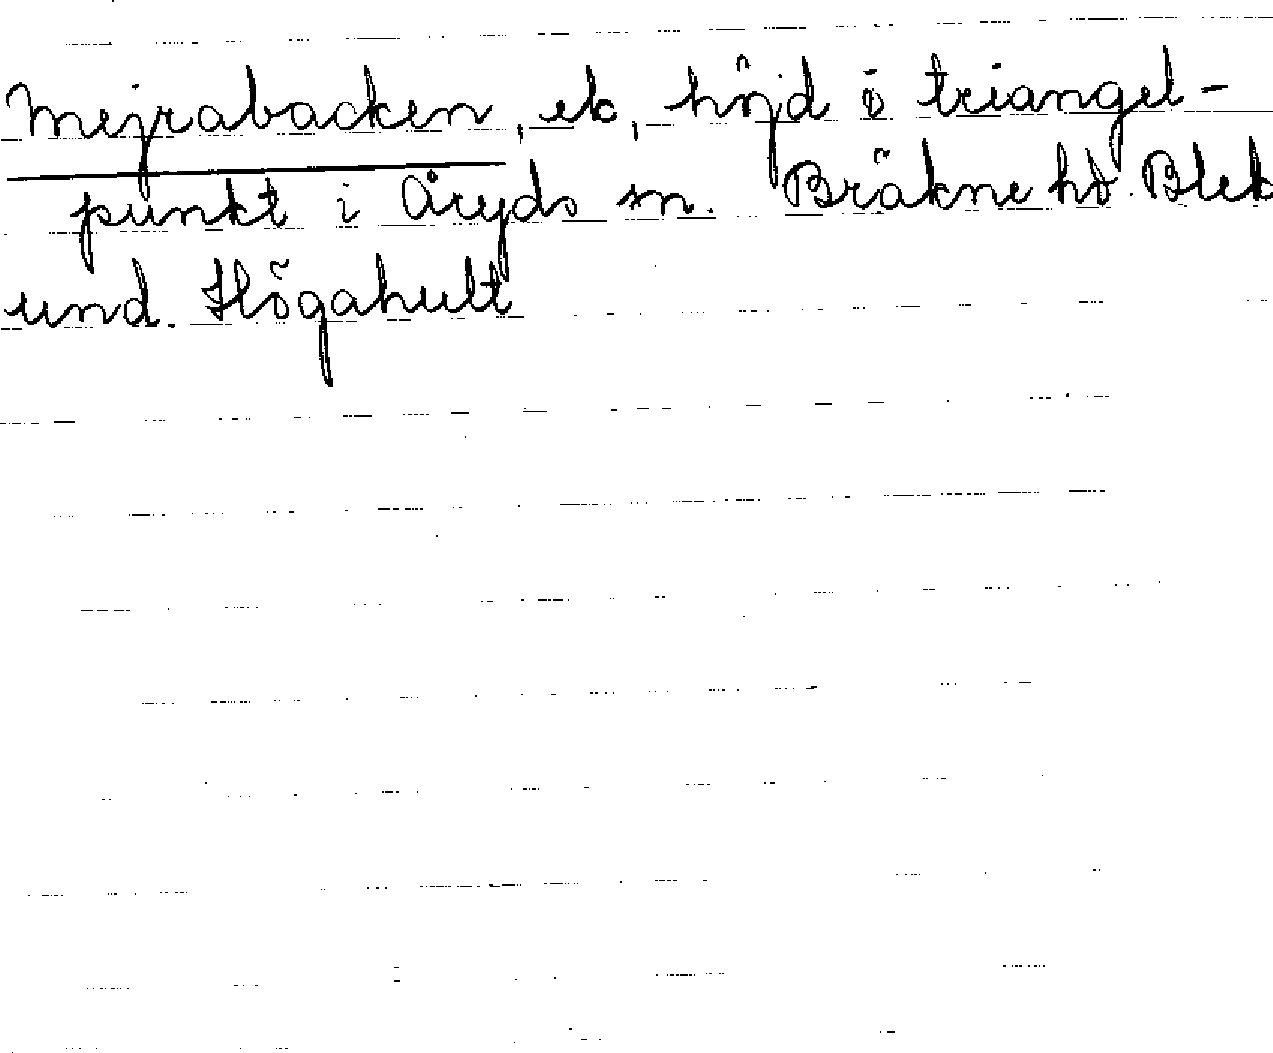 Mejrabacken, ek, höjd ö triangel-
punkt i Åryds sn. Bräkne hd. Blek
und. Högahult